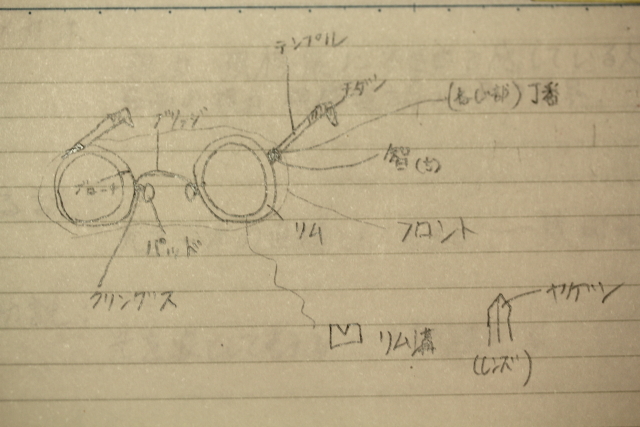 テンプル
モダン
(ねじ部)丁番
ブリッジ
智(ち)
ブローチ
リム
フロント
パッド
クリングス
ヤゲン
リム溝
(レンズ)